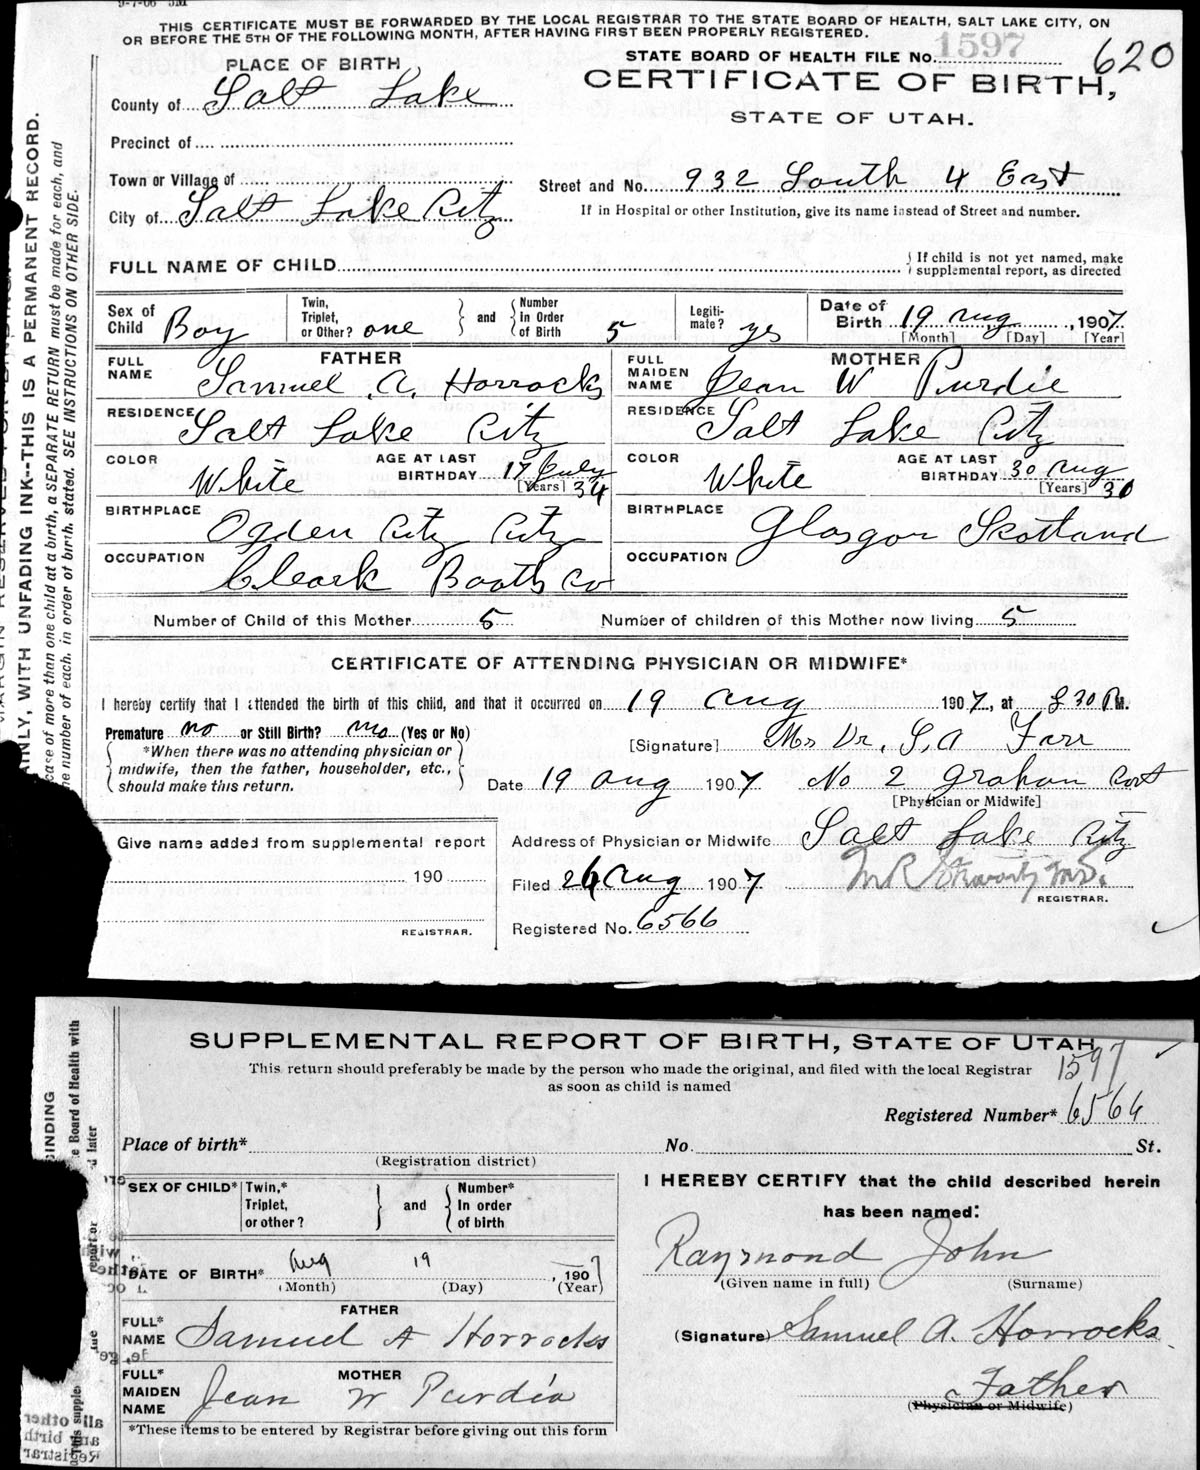 9-7-06 5M
THIS CERTIFICATE MUST BE FORWARDED BY THE LOCAL REGISTRAR TO THE STATE BOARD OF HEALTH, SALT LAKE CITY, ON
OR BEFORE THE 5TH OF THE FOLLOWING MONTH, AFTER HAVING FIRST BEEN PROPERLY REGISTERED.
PLACE OF BIRTH
STATE BOARD OF HEALTH FILE No. 1597 620
CERTIFICATE OF BIRTH,
STATE OF UTAH.
County of Salt Lake
Precinct of
Town or Village of
Street and No. 932 South 4 East
City of Salt Lake City
If in Hospital or other Institution, give its name instead of Street and number.
FULL NAME OF CHILD
If child is not yet named, make
supplemental report, as directed
Sex of Child Boy
Twin, Triplet, or Other? one
and
Number In Order of Birth 5
Legiti-mate? yes
Date of Birth 19 Aug, 1907.
[Month] [Day] [Year]
FATHER
FULL NAME Samuel A. Horrocks
MOTHER
FULL MAIDEN NAME Jean W Purdie
RESIDENCE Salt Lake City
RESIDENCE Salt Lake City
COLOR White
AGE AT LAST BIRTHDAY 17 July 34
[Years]
COLOR White
AGE AT LAST BIRTHDAY 30 Aug 30
[Years]
BIRTHPLACE Ogden City City
BIRTHPLACE Glasgow Skotland
OCCUPATION Cleark Booths Co
OCCUPATION
Number of Child of this Mother 5
Number of children of this Mother now living 5
CERTIFICATE OF ATTENDING PHYSICIAN OR MIDWIFE*
I hereby certify that I attended the birth of this child, and that it occurred on 19 Aug 1907, at 30 P.M.
Premature no or Still Birth? no (Yes or No)
*When there was no attending physician or
midwife, then the father, householder, etc.,
should make this return.
[Signature] Mrs Dr. S, A Farr
Date 19 Aug 1907 No 2 Graham Cort
[Physician or Midwife]
Give name added from supplemental report
190
REGISTRAR.
Address of Physician or Midwife Salt Lake City
Filed 26 Aug 1907
REGISTRAR.
Registered No. 6566
WITH UNFADING INK--THIS IS A PERMANENT RECORD.
case of more than one child at a birth, a SEPARATE RETURN must be made for each, and
the number of each, in order of birth, stated. SEE INSTRUCTIONS ON OTHER SIDE.
SUPPLEMENTAL REPORT OF BIRTH, STATE OF UTAH
1597
This return should preferably be made by the person who made the original, and filed with the local Registrar
as soon as child is named
Registered Number* 6566
Place of birth* No. St.
(Registration district)
SEX OF CHILD*
Twin,* Triplet, or other?
and
Number* In order of birth
DATE OF BIRTH* Aug 19, 1907
(Month) (Day) (Year)
FATHER
FULL* NAME Samuel A Horrocks
MOTHER
FULL* MAIDEN NAME Jean W Purdie
*These items to be entered by Registrar before giving out this form
I HEREBY CERTIFY that the child described herein
has been named:
Raymond John
(Given name in full) (Surname)
(Signature) Samuel A. Horrocks
Father
(Physician or Midwife)